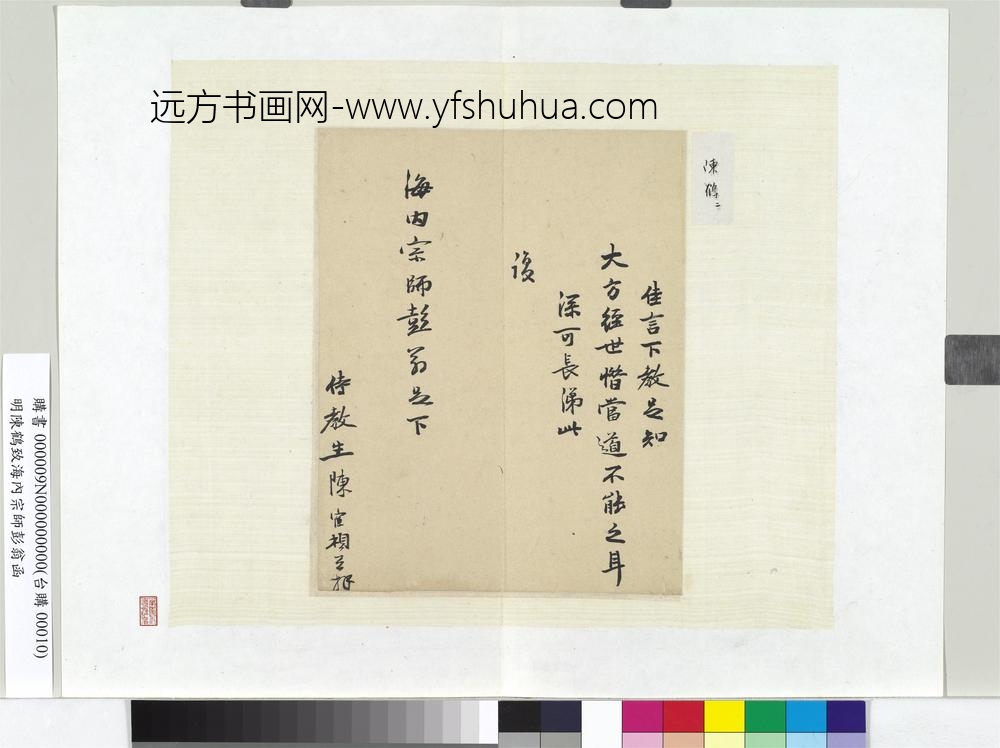 远方书画网-www.yfshuhua.com
陳鶴二
佳言下教足知
大方經世惜當道不能之耳
深可長涕此
復
海內宗師彭翁足下
侍教生陳
頓首拜
購書 000009N000000000(台購 00010)
明陳鶴致海內宗師彭翁函